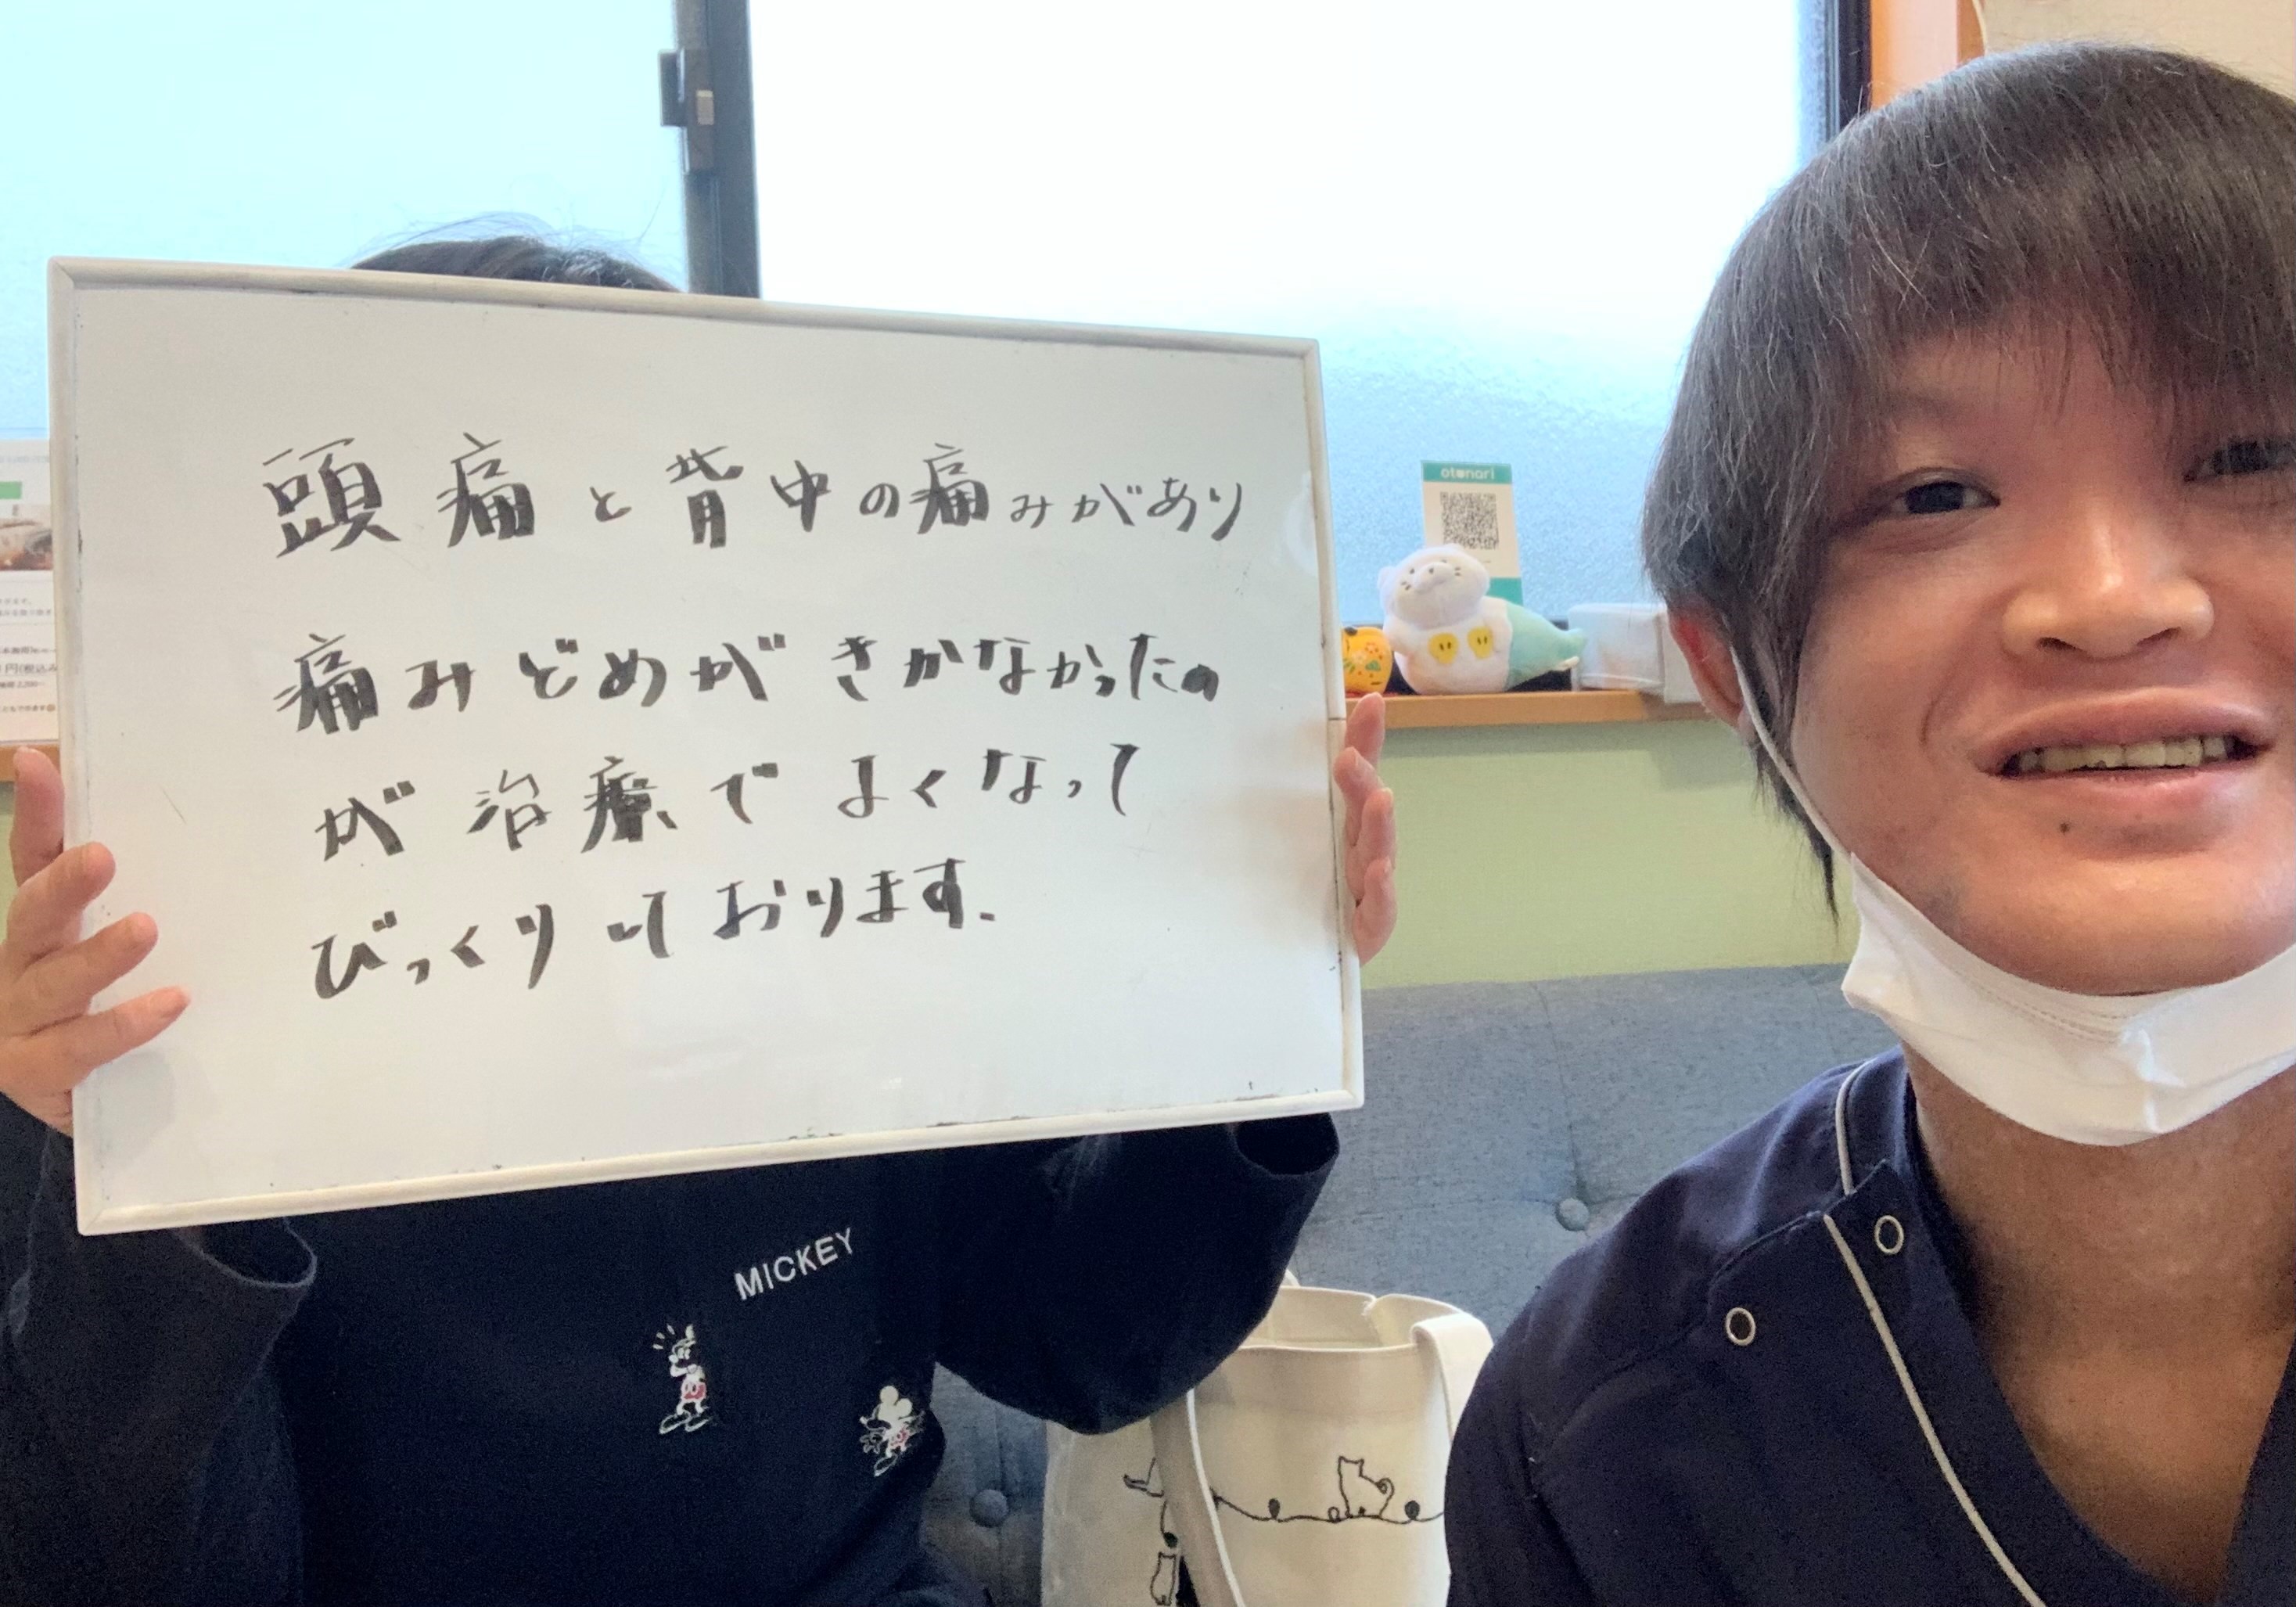 頭痛と背中の痛みがあり
痛みどめがきかなかったの
が治療でよくなって
びっくりしております.
otonari
MICKEY
円(税込み